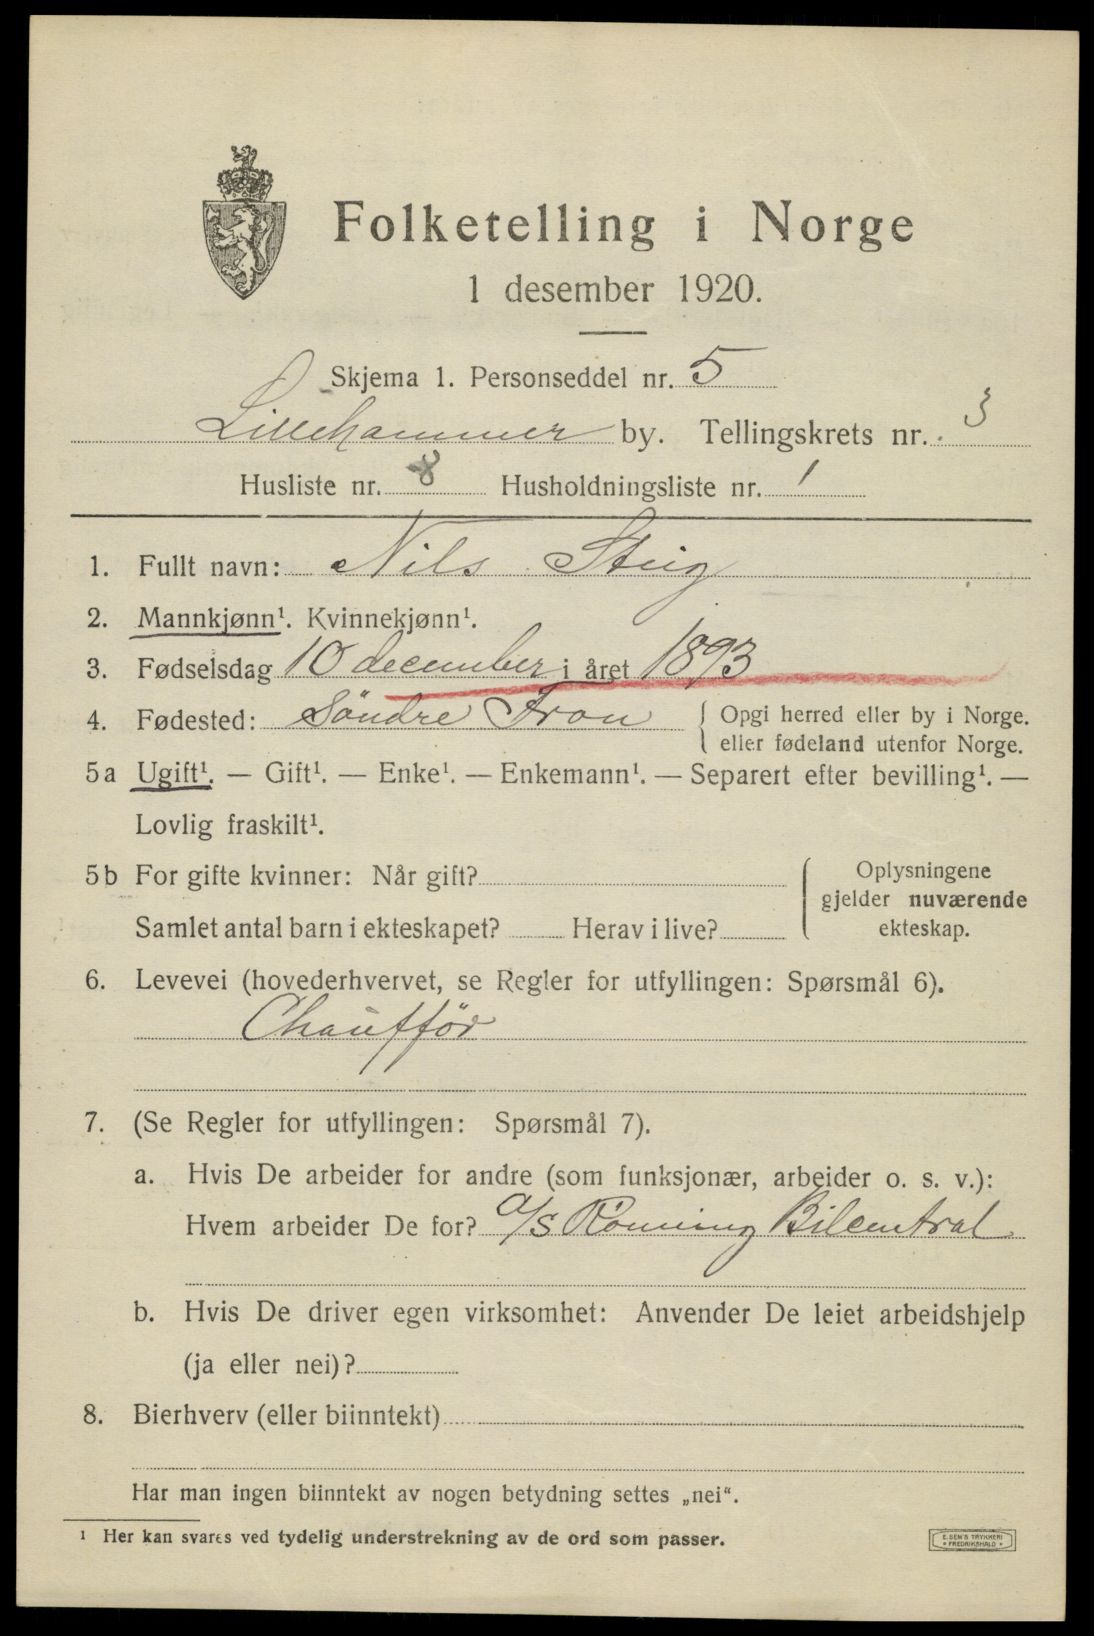 Folketelling i Norge
1 desember 1920.
Skjema 1. Personseddel nr. 5
Lillehammer by. Tellingskrets nr. 3
Husliste nr. 8 Husholdningsliste nr. 1
1. Fullt navn: Nils Stig
2. Mannkjønn¹. Kvinnekjønn¹.
3. Fødselsdag 10 december i året 1893
4. Fødested: Söndre Fron { Opgi herred eller by i Norge.
eller fødeland utenfor Norge.
5a Ugift¹. — Gift¹. — Enke¹. — Enkemann¹. — Separert efter bevilling¹. —
Lovlig fraskilt¹.
5b For gifte kvinner: Når gift? Oplysningene
gjelder nuværende
Samlet antal barn i ekteskapet? Herav i live? ekteskap.
6. Levevei (hovederhvervet, se Regler for utfyllingen: Spørsmål 6).
Chaufför
7. (Se Regler for utfyllingen: Spørsmål 7).
a. Hvis De arbeider for andre (som funksjonær, arbeider o. s. v.):
Hvem arbeider De for? A/S Rönning Bilcentral
b. Hvis De driver egen virksomhet: Anvender De leiet arbeidshjelp
(ja eller nei)?
8. Bierhverv (eller biinntekt)
Har man ingen biinntekt av nogen betydning settes „nei".
¹ Her kan svares ved tydelig understrekning av de ord som passer.
E. SEM'S TRYKKERI
FREDRIKSHALD